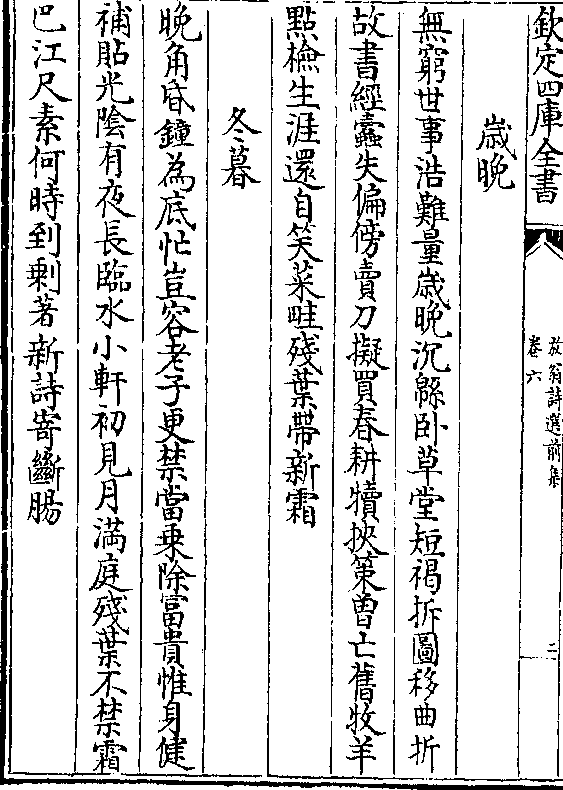 欽定四庫全書
放翁詩選前集
卷六
二
歳晚
無窮世事浩難量歳晚沉緜卧草堂短褐拆圖移曲折
故書經蠧失偏傍賣刀擬買春耕犢挾策曽亡舊牧羊
㸃檢生涯還自笑菜畦殘葉帶新霜
冬暮
晚角昏鐘為底忙豈容老子更禁當乗除富貴惟身健
補貼光陰有夜長臨水小軒初見月滿庭殘葉不禁霜
巴江尺素何時到剰著新詩寄斷腸